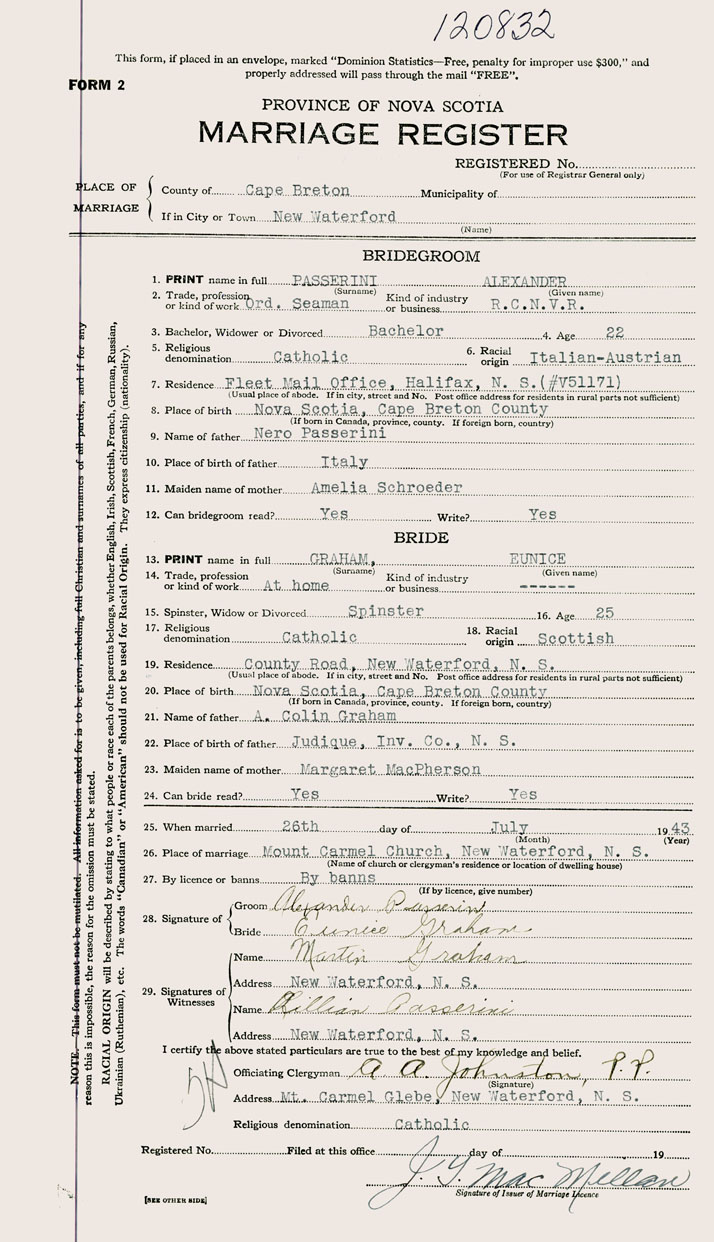 120832
This form, if placed in an envelope, marked "Dominion Statistics—Free, penalty for improper use $300," and
properly addressed will pass through the mail "FREE".
FORM 2
PROVINCE OF NOVA SCOTIA
MARRIAGE REGISTER
REGISTERED No.
(For use of Registrar General only)
PLACE OF MARRIAGE
County of Cape Breton Municipality of
If in City or Town New Waterford
(Name)
BRIDEGROOM
1. PRINT name in full PASSERINI ALEXANDER
(Surname) (Given name)
2. Trade, profession or kind of work Ord. Seaman Kind of industry or business R.C.N.V.R.
3. Bachelor, Widower or Divorced Bachelor 4. Age 22
5. Religious denomination Catholic 6. Racial origin Italian-Austrian
7. Residence Fleet Mail Office, Halifax, N. S.(#V51171)
(Usual place of abode. If in city, street and No. Post office address for residents in rural parts not sufficient)
8. Place of birth Nova Scotia, Cape Breton County
(If born in Canada, province, county. If foreign born, country)
9. Name of father Nero Passerini
10. Place of birth of father Italy
11. Maiden name of mother Amelia Schroeder
12. Can bridegroom read? Yes Write? Yes
BRIDE
13. PRINT name in full GRAHAM, EUNICE
(Surname) (Given name)
14. Trade, profession or kind of work At home Kind of industry or business ------
15. Spinster, Widow or Divorced Spinster 16. Age 25
17. Religious denomination Catholic 18. Racial origin Scottish
19. Residence County Road, New Waterford, N. S.
(Usual place of abode. If in city, street and No. Post office address for residents in rural parts not sufficient)
20. Place of birth Nova Scotia, Cape Breton County
(If born in Canada, province, county. If foreign born, country)
21. Name of father A. Colin Graham
22. Place of birth of father Judique, Inv. Co., N. S.
23. Maiden name of mother Margaret MacPherson
24. Can bride read? Yes Write? Yes
25. When married 26th day of July 1943
(Month) (Year)
26. Place of marriage Mount Carmel Church, New Waterford, N. S.
(Name of church or clergyman's residence or location of dwelling house)
27. By licence or banns By banns
(If by licence, give number)
28. Signature of
Groom Alexander Passerini
Bride Eunice Graham
29. Signatures of Witnesses
Name Martin Graham
Address New Waterford, N. S.
Name Lillian Passerini
Address New Waterford, N. S.
I certify the above stated particulars are true to the best of my knowledge and belief.
Officiating Clergyman A. A. Johnston, P.P.
(Signature)
Address Mt. Carmel Glebe, New Waterford, N. S.
Religious denomination Catholic
Registered No. Filed at this office day of 19
J. G. MacMillan
Signature of Issuer of Marriage Licence
[SEE OTHER SIDE]
NOTE. This form must not be mutilated. All information asked for is to be given, including full Christian and surnames of all parties, and if for any
reason this is impossible, the reason for the omission must be stated.
RACIAL ORIGIN will be described by stating to what people or race each of the parents belongs, whether English, Irish, Scottish, French, German, Russian,
Ukrainian (Ruthenian), etc. The words "Canadian" or "American" should not be used for Racial Origin. They express citizenship (nationality).